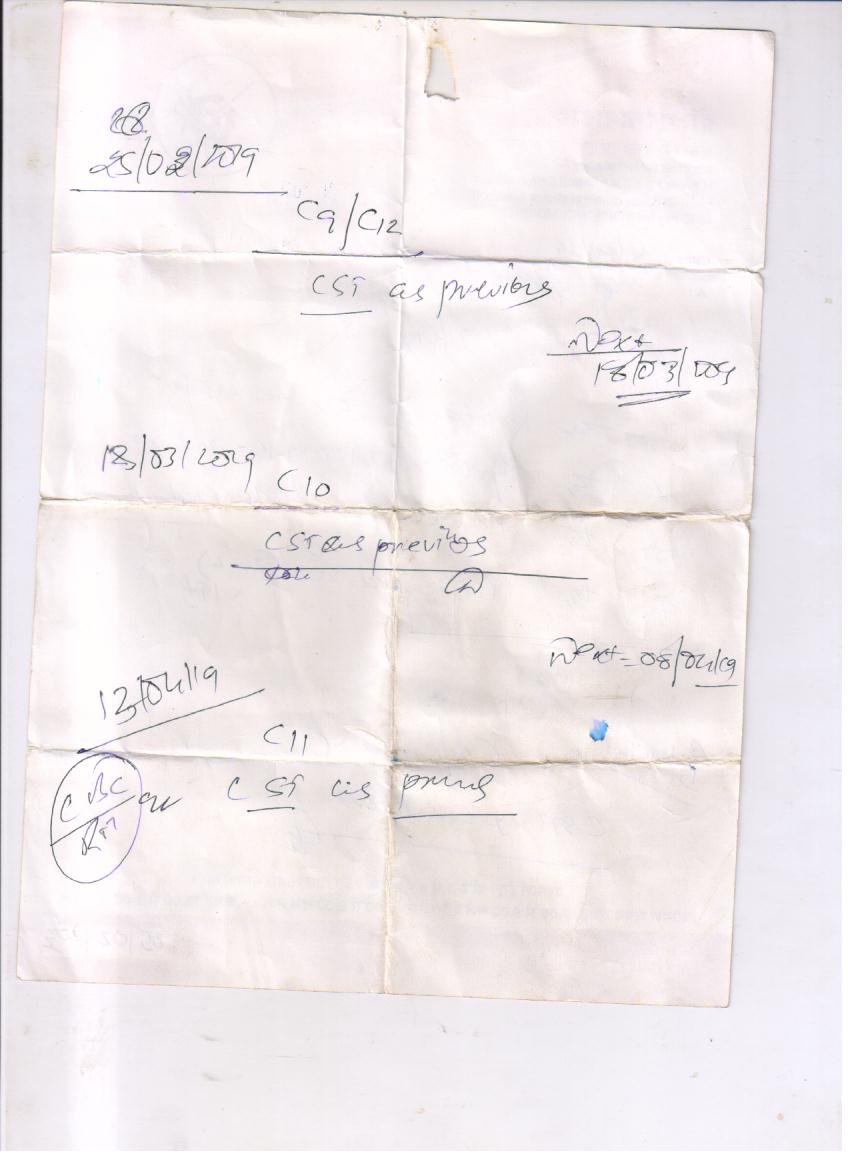 25/02/2019
C9/C12
CST as previous
Next
18/03/2019
18/03/2019
C10
CST as previous
Next = 08/04/19
13/04/19
C11
CBC
CST as